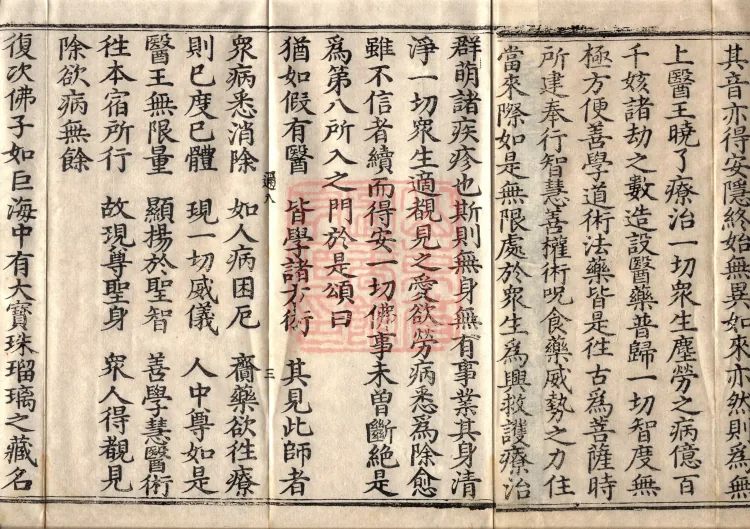 其音亦得安隱終始無異如來亦然則為無
上醫王曉了療治一切衆生塵勞之病億百
千姟諸劫之數造設醫藥普歸一切智度無
極方便善學道術法藥皆是往古為菩薩時
所建奉行智慧善權術呪食藥威勢之力住
當來際如是無限處於衆生為興救護療治
群萌諸疾疹也斯則無身無有事業其身清
淨一切衆生適覩見之愛欲勞病悉為除愈
雖不信者續而得安一切佛事未曾斷絕是
為第八所入之門於是頌曰
猶如假有醫 皆學諸方術 其見此師者
衆病悉消除 如人病困厄 齎藥欲往療
則已度已體 現一切威儀 人中尊如是
醫王無限量 顯揚於聖智 善學慧醫術
往本宿所行 故現尊聖身 衆人得覩見
除欲病無餘
復次佛子如巨海中有大寶珠瑠璃之藏名